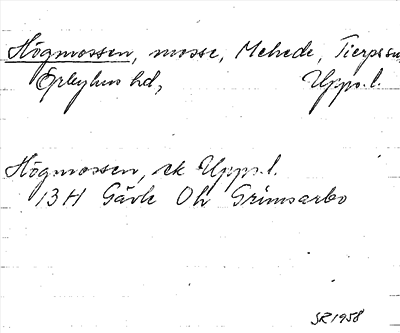 Högmossen, mosse, Mehede, Tierps sn,
Örbyhus hd, Upps. l.
Högmossen, ek Upps. l.
13H Gävle Oh Grimsarbo
SR 1958